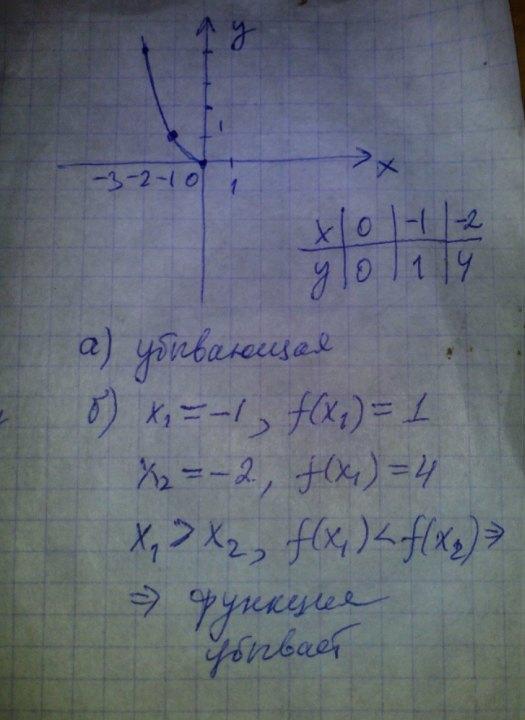 y
1
x
-3 -2 -1 0 1
x | 0 | -1 | -2
y | 0 | 1 | 4
а) убывающая
б) x₁ = -1, f(x₁) = 1
x₂ = -2, f(x₁) = 4
x₁ > x₂, f(x₁) < f(x₂) ⇒
⇒ функция
убывает